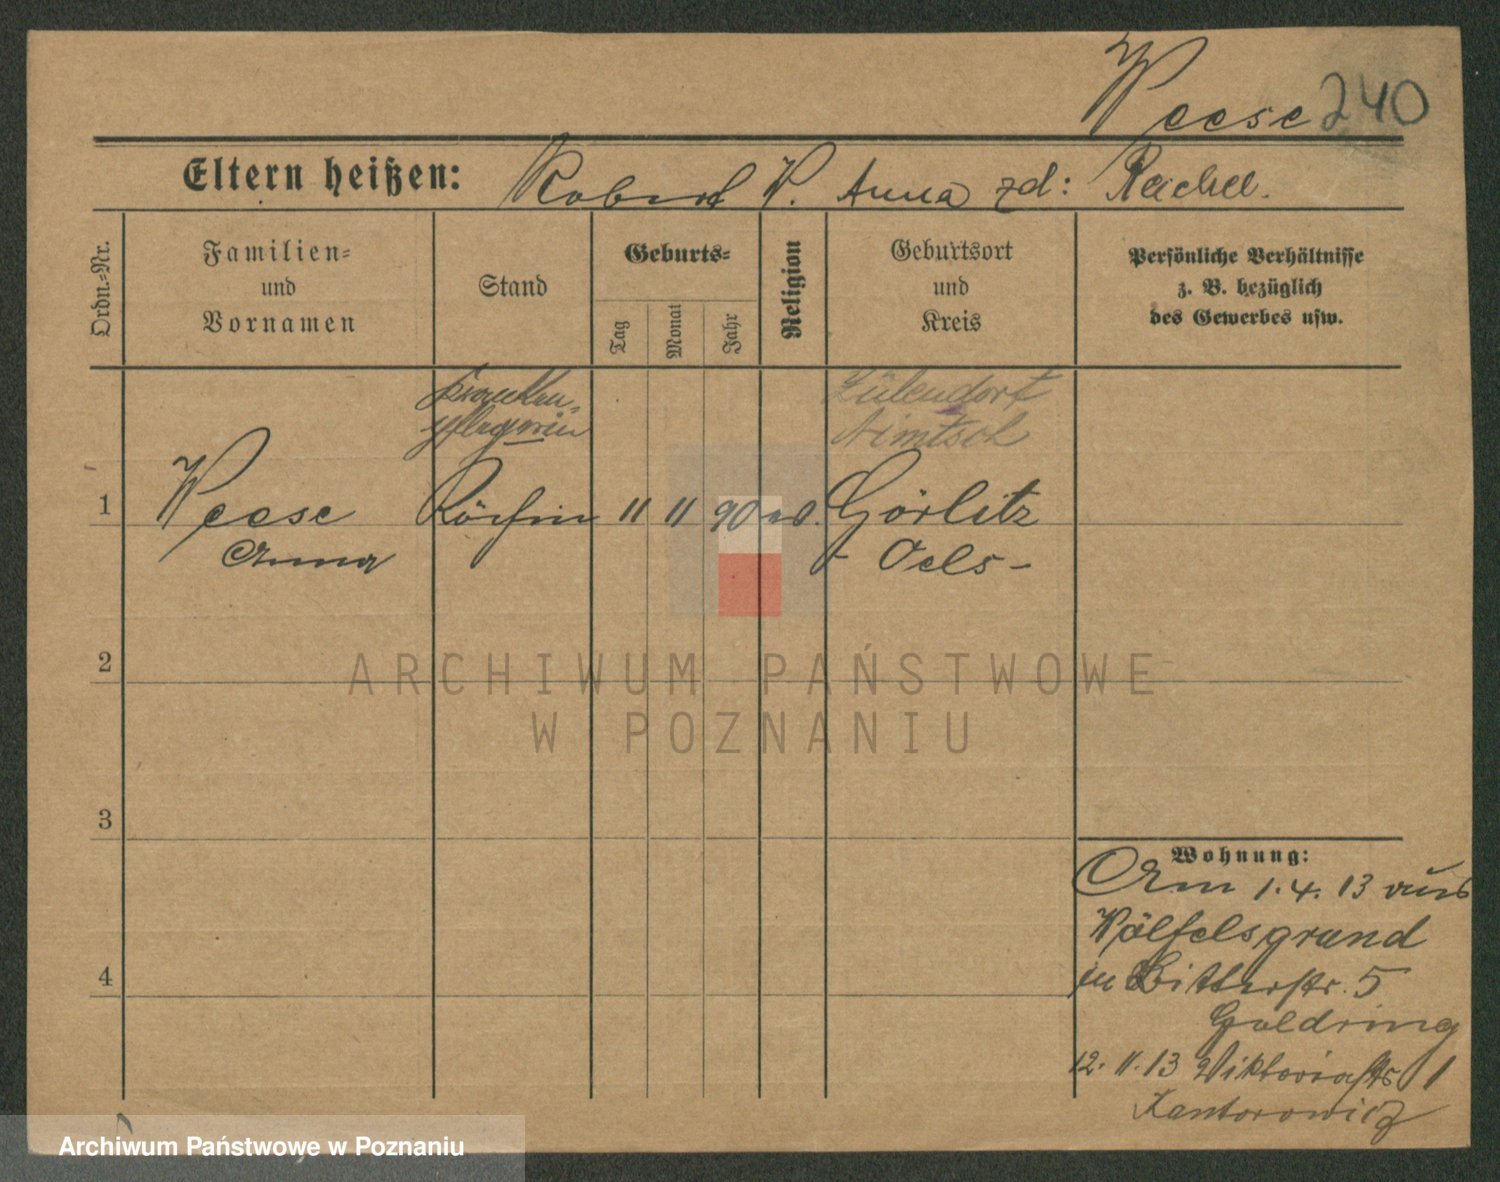 Weese 240
Eltern heißen: Robert W. Anna zd: Reichel.
Ordn.-Nr.
Familien-
und
Vornamen
Stand
Geburts-
Tag
Monat
Jahr
Religion
Geburtsort
und
Kreis
Persönliche Verhältnisse
z. B. bezüglich
des Gewerbes usw.
Kranken-
pflegerin
Nimtsch
1 Weese Köchin 11 11 90 Görlitz
Anna - Oels -
2
3
4
Wohnung:
Am 1.4.13 aus
Wölfelsgrund
in Ritterstr. 5
Goldring
12.11.13 Viktoriastr 1
Kantorowicz
ARCHIWUM PAŃSTWOWE
W POZNANIU
Archiwum Państwowe w Poznaniu